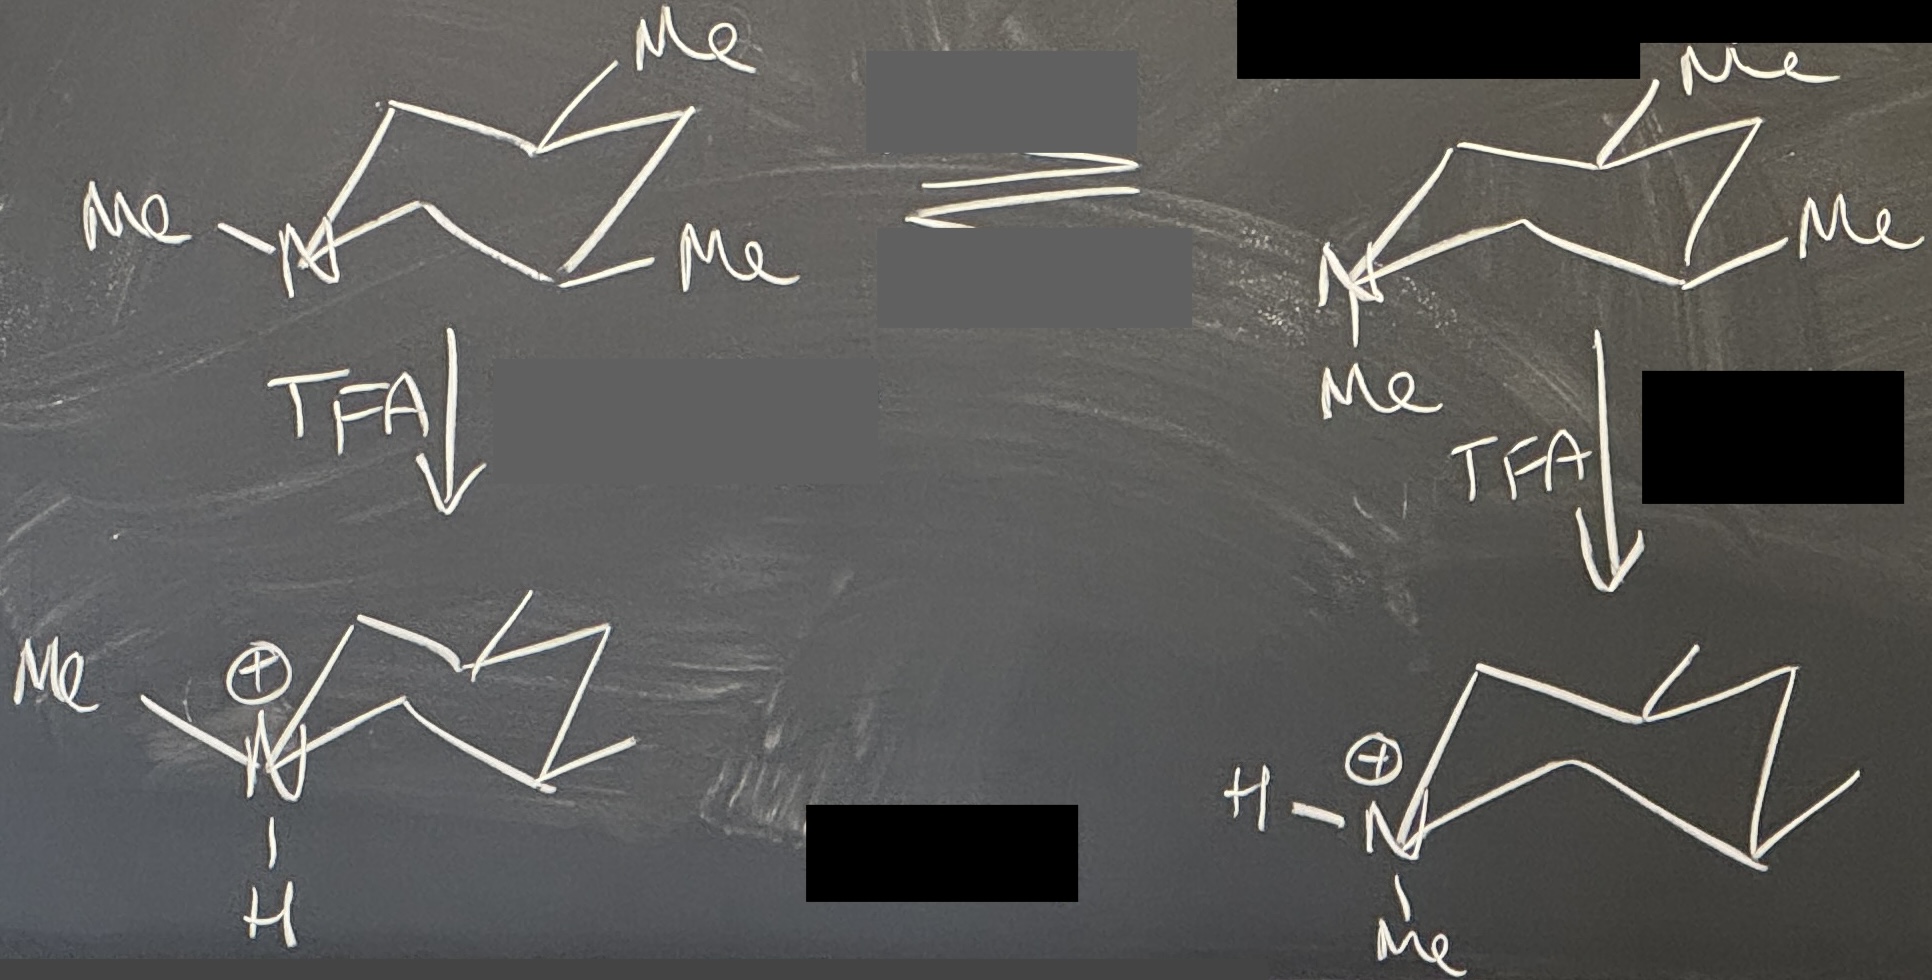 Me
Me
Me
N
Me
N
Me
Me
TFA
TFA
Me
⊕
N
H
⊕
H
N
Me